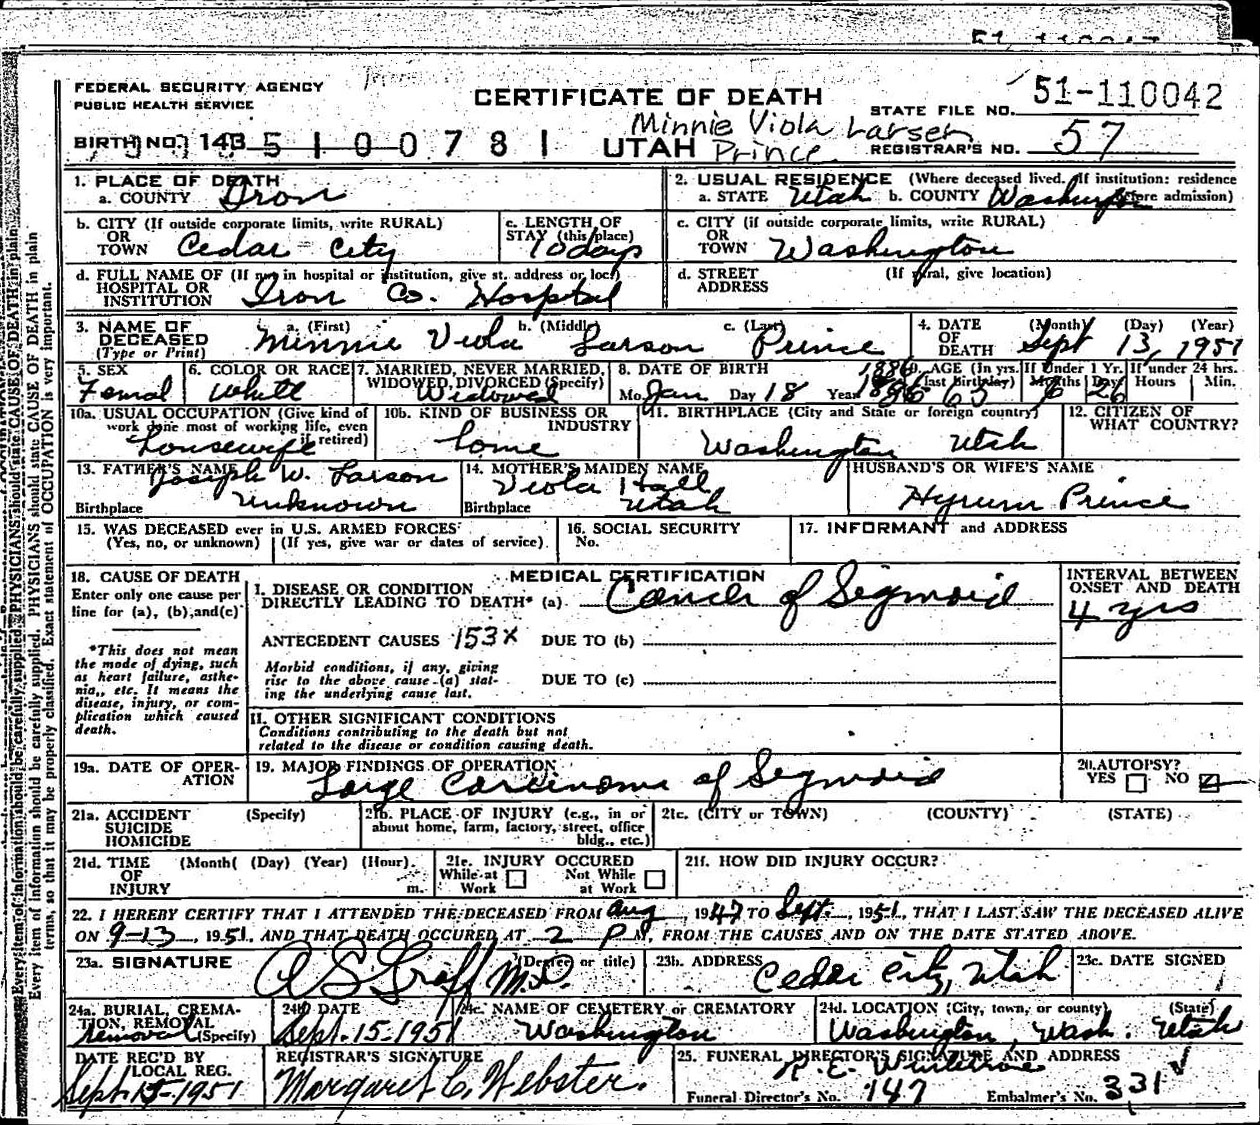 FEDERAL SECURITY AGENCY
PUBLIC HEALTH SERVICE
CERTIFICATE OF DEATH
STATE FILE NO. 51-110042
BIRTH NO. 143 5100781
UTAH
Minnie Viola Larsen
Prince
REGISTRAR'S NO. 57
1. PLACE OF DEATH
a. COUNTY Iron
2. USUAL RESIDENCE (Where deceased lived. If institution: residence before admission)
a. STATE Utah b. COUNTY Washington
b. CITY (If outside corporate limits, write RURAL)
OR
TOWN Cedar City
c. LENGTH OF
STAY (this place)
10 days
c. CITY (if outside corporate limits, write RURAL)
OR
TOWN Washington
d. FULL NAME OF (If not in hospital or institution, give st. address or loc.)
HOSPITAL OR
INSTITUTION Iron Co. Hospital
d. STREET
ADDRESS
(If rural, give location)
3. NAME OF
DECEASED
(Type or Print)
a. (First) b. (Middle) c. (Last)
Minnie Viola Larson Prince
4. DATE
OF
DEATH
(Month) (Day) (Year)
Sept 13, 1951
5. SEX
Femal
6. COLOR OR RACE
White
7. MARRIED, NEVER MARRIED,
WIDOWED, DIVORCED (Specify)
Widowed
8. DATE OF BIRTH
1886
Mo. Jan Day 18 Year 1886
9. AGE (In yrs. last birthday)
65
If Under 1 Yr.
Months Days
26
If under 24 hrs.
Hours Min.
10a. USUAL OCCUPATION (Give kind of
work done most of working life, even
if retired)
housewife
10b. KIND OF BUSINESS OR
INDUSTRY
home
11. BIRTHPLACE (City and State or foreign country)
Washington Utah
12. CITIZEN OF
WHAT COUNTRY?
13. FATHER'S NAME
Joseph W. Larson
Birthplace Unknown
14. MOTHER'S MAIDEN NAME
Viola Hall
Birthplace Utah
HUSBAND'S OR WIFE'S NAME
Hyrum Prince
15. WAS DECEASED ever in U.S. ARMED FORCES
(Yes, no, or unknown) (If yes, give war or dates of service)
16. SOCIAL SECURITY
No.
17. INFORMANT and ADDRESS
18. CAUSE OF DEATH
Enter only one cause per
line for (a), (b), and (c)
*This does not mean
the mode of dying, such
as heart failure, asthe-
nia,, etc. It means the
disease, injury, or com-
plication which caused
death.
MEDICAL CERTIFICATION
I. DISEASE OR CONDITION
DIRECTLY LEADING TO DEATH* (a) Cancer of Sigmoid
ANTECEDENT CAUSES 153X DUE TO (b)
Morbid conditions, if any, giving
rise to the above cause (a) stat-
ing the underlying cause last.
DUE TO (c)
INTERVAL BETWEEN
ONSET AND DEATH
4 yrs
II. OTHER SIGNIFICANT CONDITIONS
Conditions contributing to the death but not
related to the disease or condition causing death.
19a. DATE OF OPER-
ATION
19. MAJOR FINDINGS OF OPERATION
Large Carcinoma of Sigmoid
20. AUTOPSY?
YES NO
21a. ACCIDENT
SUICIDE
HOMICIDE
(Specify)
21b. PLACE OF INJURY (e.g., in or
about home, farm, factory, street, office
bldg., etc.)
21c. (CITY or TOWN) (COUNTY) (STATE)
21d. TIME
OF
INJURY
(Month( (Day) (Year) (Hour)
m.
21e. INJURY OCCURED
While at
Work
Not While
at Work
21f. HOW DID INJURY OCCUR?
22. I HEREBY CERTIFY THAT I ATTENDED THE DECEASED FROM Aug, 1947 TO Sept., 1951, THAT I LAST SAW THE DECEASED ALIVE
ON 9-13, 1951, AND THAT DEATH OCCURED AT 2 P M, FROM THE CAUSES AND ON THE DATE STATED ABOVE.
23a. SIGNATURE (Degree or title)
A S Graff M.D.
23b. ADDRESS
Cedar City, Utah
23c. DATE SIGNED
24a. BURIAL, CREMA-
TION, REMOVAL
(Specify)
removal
24b. DATE
Sept. 15-1951
24c. NAME OF CEMETERY OR CREMATORY
Washington
24d. LOCATION (City, town, or county) (State)
Washington, Wash. Utah
DATE REC'D BY
LOCAL REG.
Sept. 15-1951
REGISTRAR'S SIGNATURE
Margaret C. Webster.
25. FUNERAL DIRECTOR'S SIGNATURE AND ADDRESS
Funeral Director's No. 147 Embalmer's No. 331
Every item of information should be carefully supplied. PHYSICIANS should state CAUSE OF DEATH in plain
terms, so that it may be properly classified. Exact statement of OCCUPATION is very important.